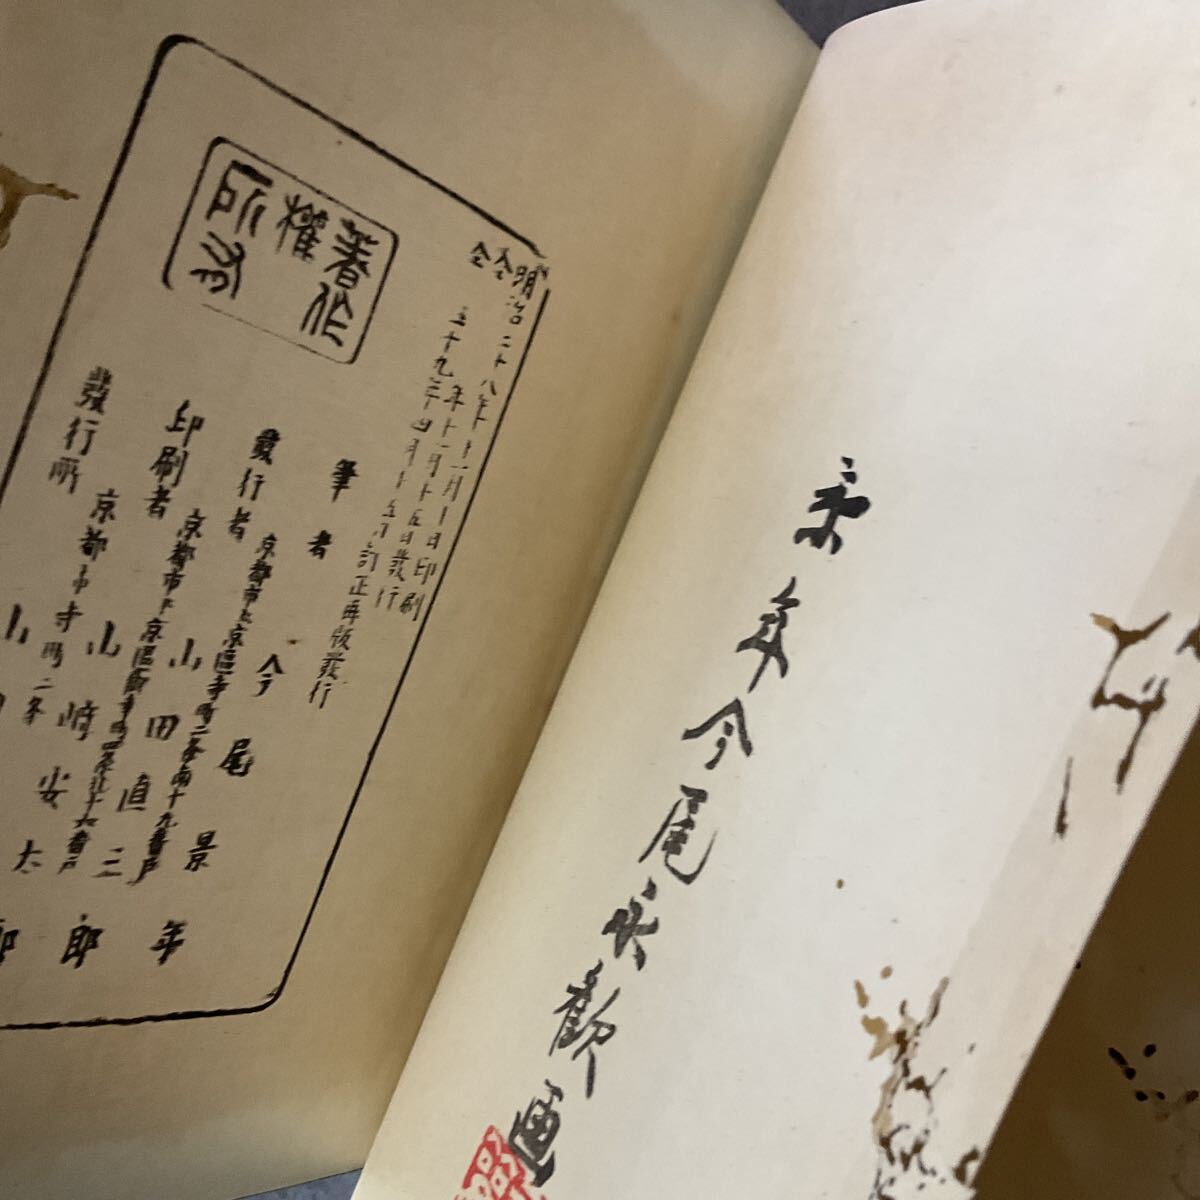 景年今尾永歡画
明治二十八年十一月十日印刷
仝 年十一月十五日發行
仝 三十九年四月十五日訂正再版發行
著作
權
所有
筆者 今尾景年
發行者 京都市上京區寺町二条南十九番戸
山田直三郎
印刷者 京都市下京區
山崎安太郎
發行所 京都市寺町二条
山田